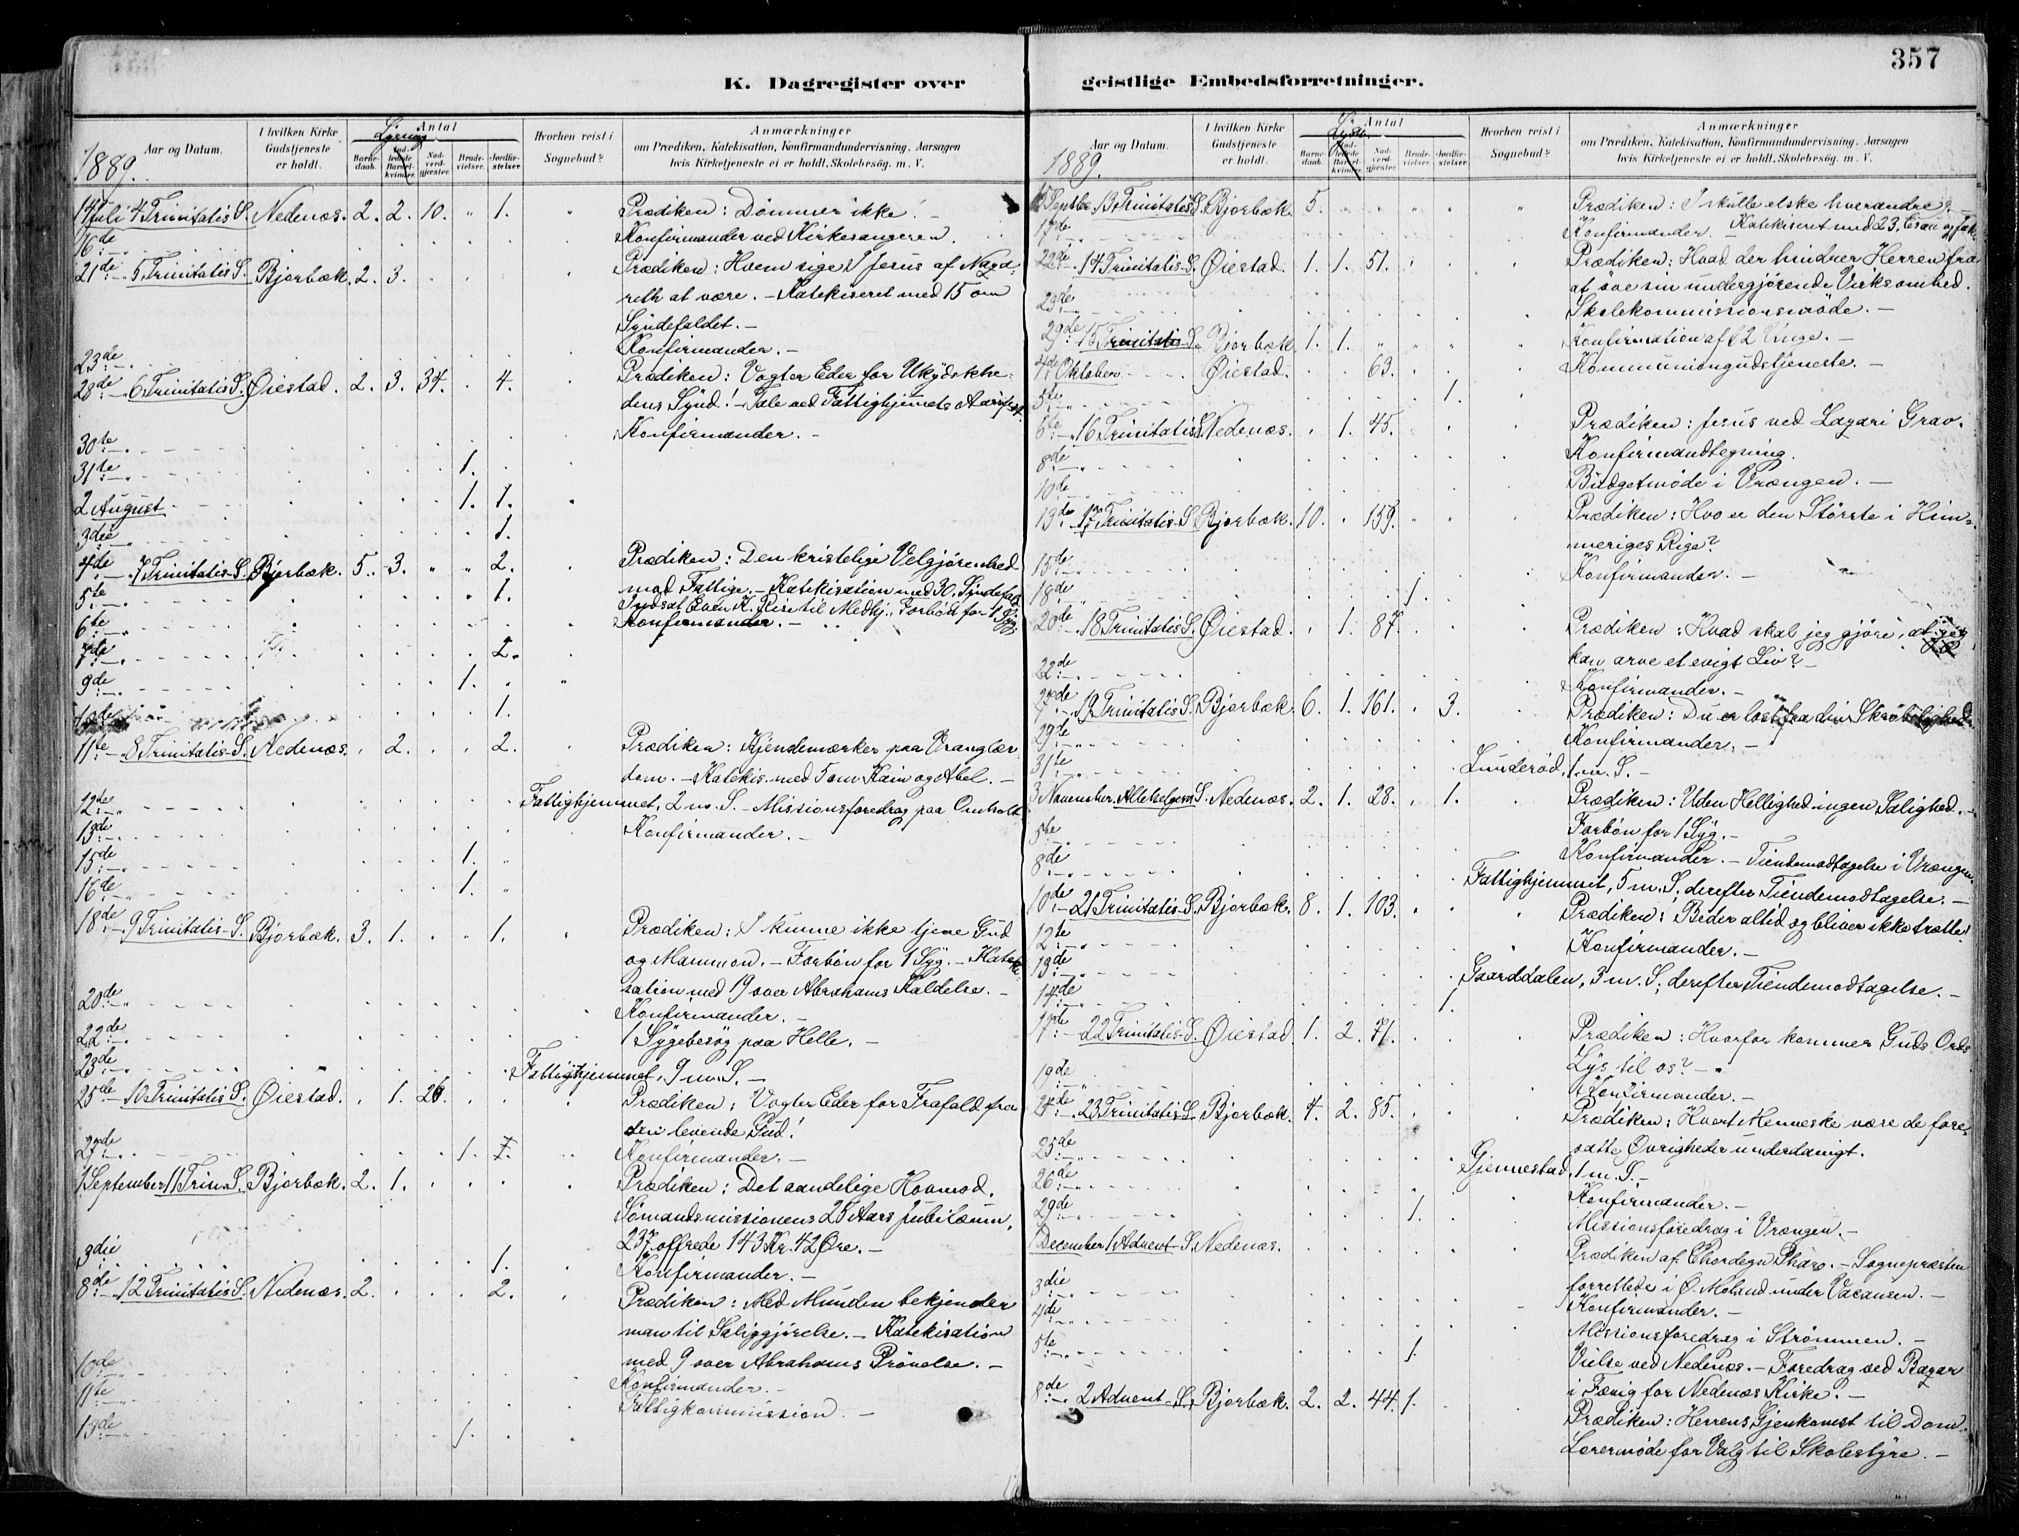 357
K. Dagregister over
geistlige Embedsforretninger.
Aar og Datum.
I hvilken Kirke Gudstjeneste er holdt.
Antal
Lysning
Barnedaab.
Indledede Barselkvinder.
Nadverdgjæster.
Brudevielser.
Jordfæstelser.
Hvorhen reist i Sognebud?
Anmærkninger
om Prædiken, Katekisation, Konfirmandundervisning. Aarsagen
hvis Kirketjeneste ei er holdt. Skolebesøg. m. V.
1889.
14 Juli 4 Trinitatis S. Nedenæs. 2. 2. 10. " 1. " Prædiken: Dømmer ikke! -
16de Konfirmander ved Kirkesangeren.
21de 5 Trinitatis S. Bjorbæk. 2. 3. Prædiken: Hvem sige I Jesus af Naza-
reth at være. - Katekiseret med 15 om
Syndefaldet. -
23de Konfirmander. -
28de 6 Trinitatis S. Øiestad. 2. 3. 34. 4. Prædiken: Vogter Eder for Ukydskhe-
dens Synd! - Tale ved Fattighjemmets Aarsfest.
30te Konfirmander. -
31te 1.
2 August 1. 1. "
3die 1.
4de 7 Trinitatis S. Bjorbæk. 5. 3. " " 2. Prædiken: Den kristelige Velgjørenhed
5te 1. mod Fattige. - Katekisation med 30. Syndefald
Indsat Even K. Rise til Medhj. Forbøn for 1 Syg.
6te Konfirmander. -
7de 2.
9de 1. "
10de 1.
11te 8 Trinitatis S. Nedenæs. 2. 2. Prædiken: Kjendemærker paa Vranglær-
dom. - Katekis. med 5 om Kain og Abel. -
12te Fattighjemmet, 2 m. S. - Missionsforedrag paa Omholt
13de Konfirmander. -
15de 1.
16de 1.
18de 9 Trinitatis S. Bjorbæk. 3. 1. 1. Prædiken: I kunne ikke tjene Gud
og Mammon. - Forbøn for 1 Syg. - Kateki-
sation med 19 over Abrahams Kaldelse. -
20de Konfirmander. -
22de 1 Sygebesøg paa Helle. -
23de Fattighjemmet, 9 m. S. -
25de 10 Trinitatis S. Øiestad. 1. 26. Prædiken: Vogter Eder for Frafald fra
den levende Gud!
27de 1. 7. Konfirmander. -
1 September 11 Trin. S. Bjorbæk. 2. 1. Prædiken: Det aandelige Hovmod.
Sømandsmissionens 25 Aars Jubilæum.
237 offrede 143 Kr. 42 Øre. -
3die 1. Konfirmander. -
8de 12 Trinitatis S. Nedenæs. 2. 2. Prædiken: Med Munden bekjender
man til Saliggjørelse. - Katekisation
med 9 over Abrahams Prøvelse. -
10de Konfirmander. -
11te Fattigkommission. -
13de 1.
Aar og Datum.
I hvilken Kirke Gudstjeneste er holdt.
Antal
Barnedaab.
Indledede Barselkvinder.
Nadverdgjæster.
Brudevielser.
Jordfæstelser.
Hvorhen reist i Sognebud?
Anmærkninger
om Prædiken, Katekisation, Konfirmandundervisning. Aarsagen
hvis Kirketjeneste ei er holdt. Skolebesøg. m. V.
1889.
15 Septbr. 13 Trinitatis S. Bjorbæk. 5. Prædiken: I skulle elske hverandre! -
17de Konfirmander. - Katekiseret med 23, Esau og Jak.
22de 14 Trinitatis S. Øiestad. 1. 1. 51. Prædiken: Hvad der hindrer Herren fra
at øve sin undergjørende Virksomhed.
23de Skolekommissionsmøde. -
29de 15 Trinitatis S. Bjorbæk. 1. 1. Konfirmation af 62 Unge. -
4de Oktober Øiestad. 63. Kommuniongudstjeneste. -
5te 1.
6te 16 Trinitatis S. Nedenæs. 1. 45. Prædiken: Jesus ved Lazari Grav.
8de Konfirmandtegning.
10de Budgetmøde i Vrængen. -
13de 17 Trinitatis S. Bjorbæk. 10. 159. Prædiken: Hvo er den Største i Him-
meriges Rige?
15de Konfirmander. -
18de 1.
20de 18 Trinitatis S. Øiestad. 1. 87. Prædiken: Hvad skal jeg gjøre, at jeg
kan arve et evigt Liv? -
22de Konfirmander. -
27de 19 Trinitatis S. Bjorbæk. 6. 1. 161. 3. Prædiken: Du er løst fra din Skrøbelighed.
29de Konfirmander. -
31te Lunderød, 1 m. S. -
3 November. Allehelgens S. Nedenæs. 2. 1. 28. 1. Prædiken: Uden Hellighed ingen Salighed. -
Forbøn for 1 Syg. -
5te Konfirmander. - Tiendemodtagelse i Vrængen.
8de Fattighjemmet, 5 m. S. derefter Tiendemodtagelse. -
10de 21 Trinitatis S. Bjorbæk. 8. 1. 103. Prædiken: Beder altid og bliver ikke trætte!
12te Konfirmander. -
13de Gaarddalen, 3 m. S., derefter Tiendemodtagelse. -
14de 1.
17de 22 Trinitatis S. Øiestad. 1. 2. 71. Prædiken: Hvorfor kommer Guds Ords
Lys til os? -
19de Konfirmander. -
24de 23 Trinitatis S. Bjorbæk. 4. 2. 85. Prædiken: Hvert Menneske være de fore-
satte Øvrigheder underdanigt.
25de Gjennestad, 1 m. S. -
26de Konfirmander. -
29de 1. Missionsforedrag i Vrængen. -
1 December 1 Advent S. Nedenæs. Prædiken af Chordegn Pharo. - Sognepræsten
forrettede i Ø. Moland under Vacansen. -
3die Konfirmander. -
4de Missionsforedrag i Strømmen. -
5te 1. Vielse ved Nedenæs. - Foredrag ved Bazar
i Fævig for Nedenæs Kirke. -
8de 2 Advent S. Bjorbæk. 2. 2. 44. 1. Prædiken: Herrens Gjenkomst til Dom.
Lærermøde for Valg til Skolestyre. -